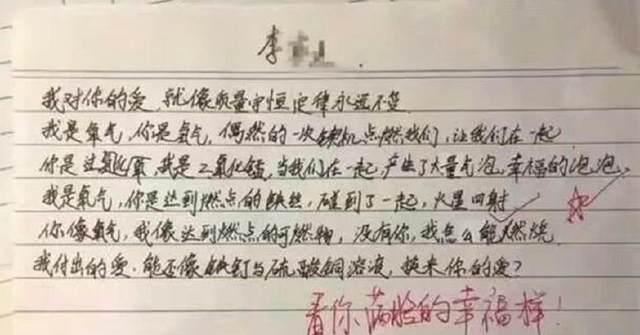 李
我对你的爱,就像质量守恒定律永远不变
我是氧气,你是氢气,偶然的一次契机点燃我们,让我们在一起
你是过氧化氢,我是二氧化锰,当我们在一起,产生了大量气泡,幸福的泡泡
我是氧气,你是达到燃点的铁丝,碰到了一起,火星四射
你像氧气,我像达到燃点的可燃物,没有你,我怎么能燃烧
我付出的爱,能否像铁钉与硫酸铜溶液,换来你的爱?
看你满脸的幸福样!